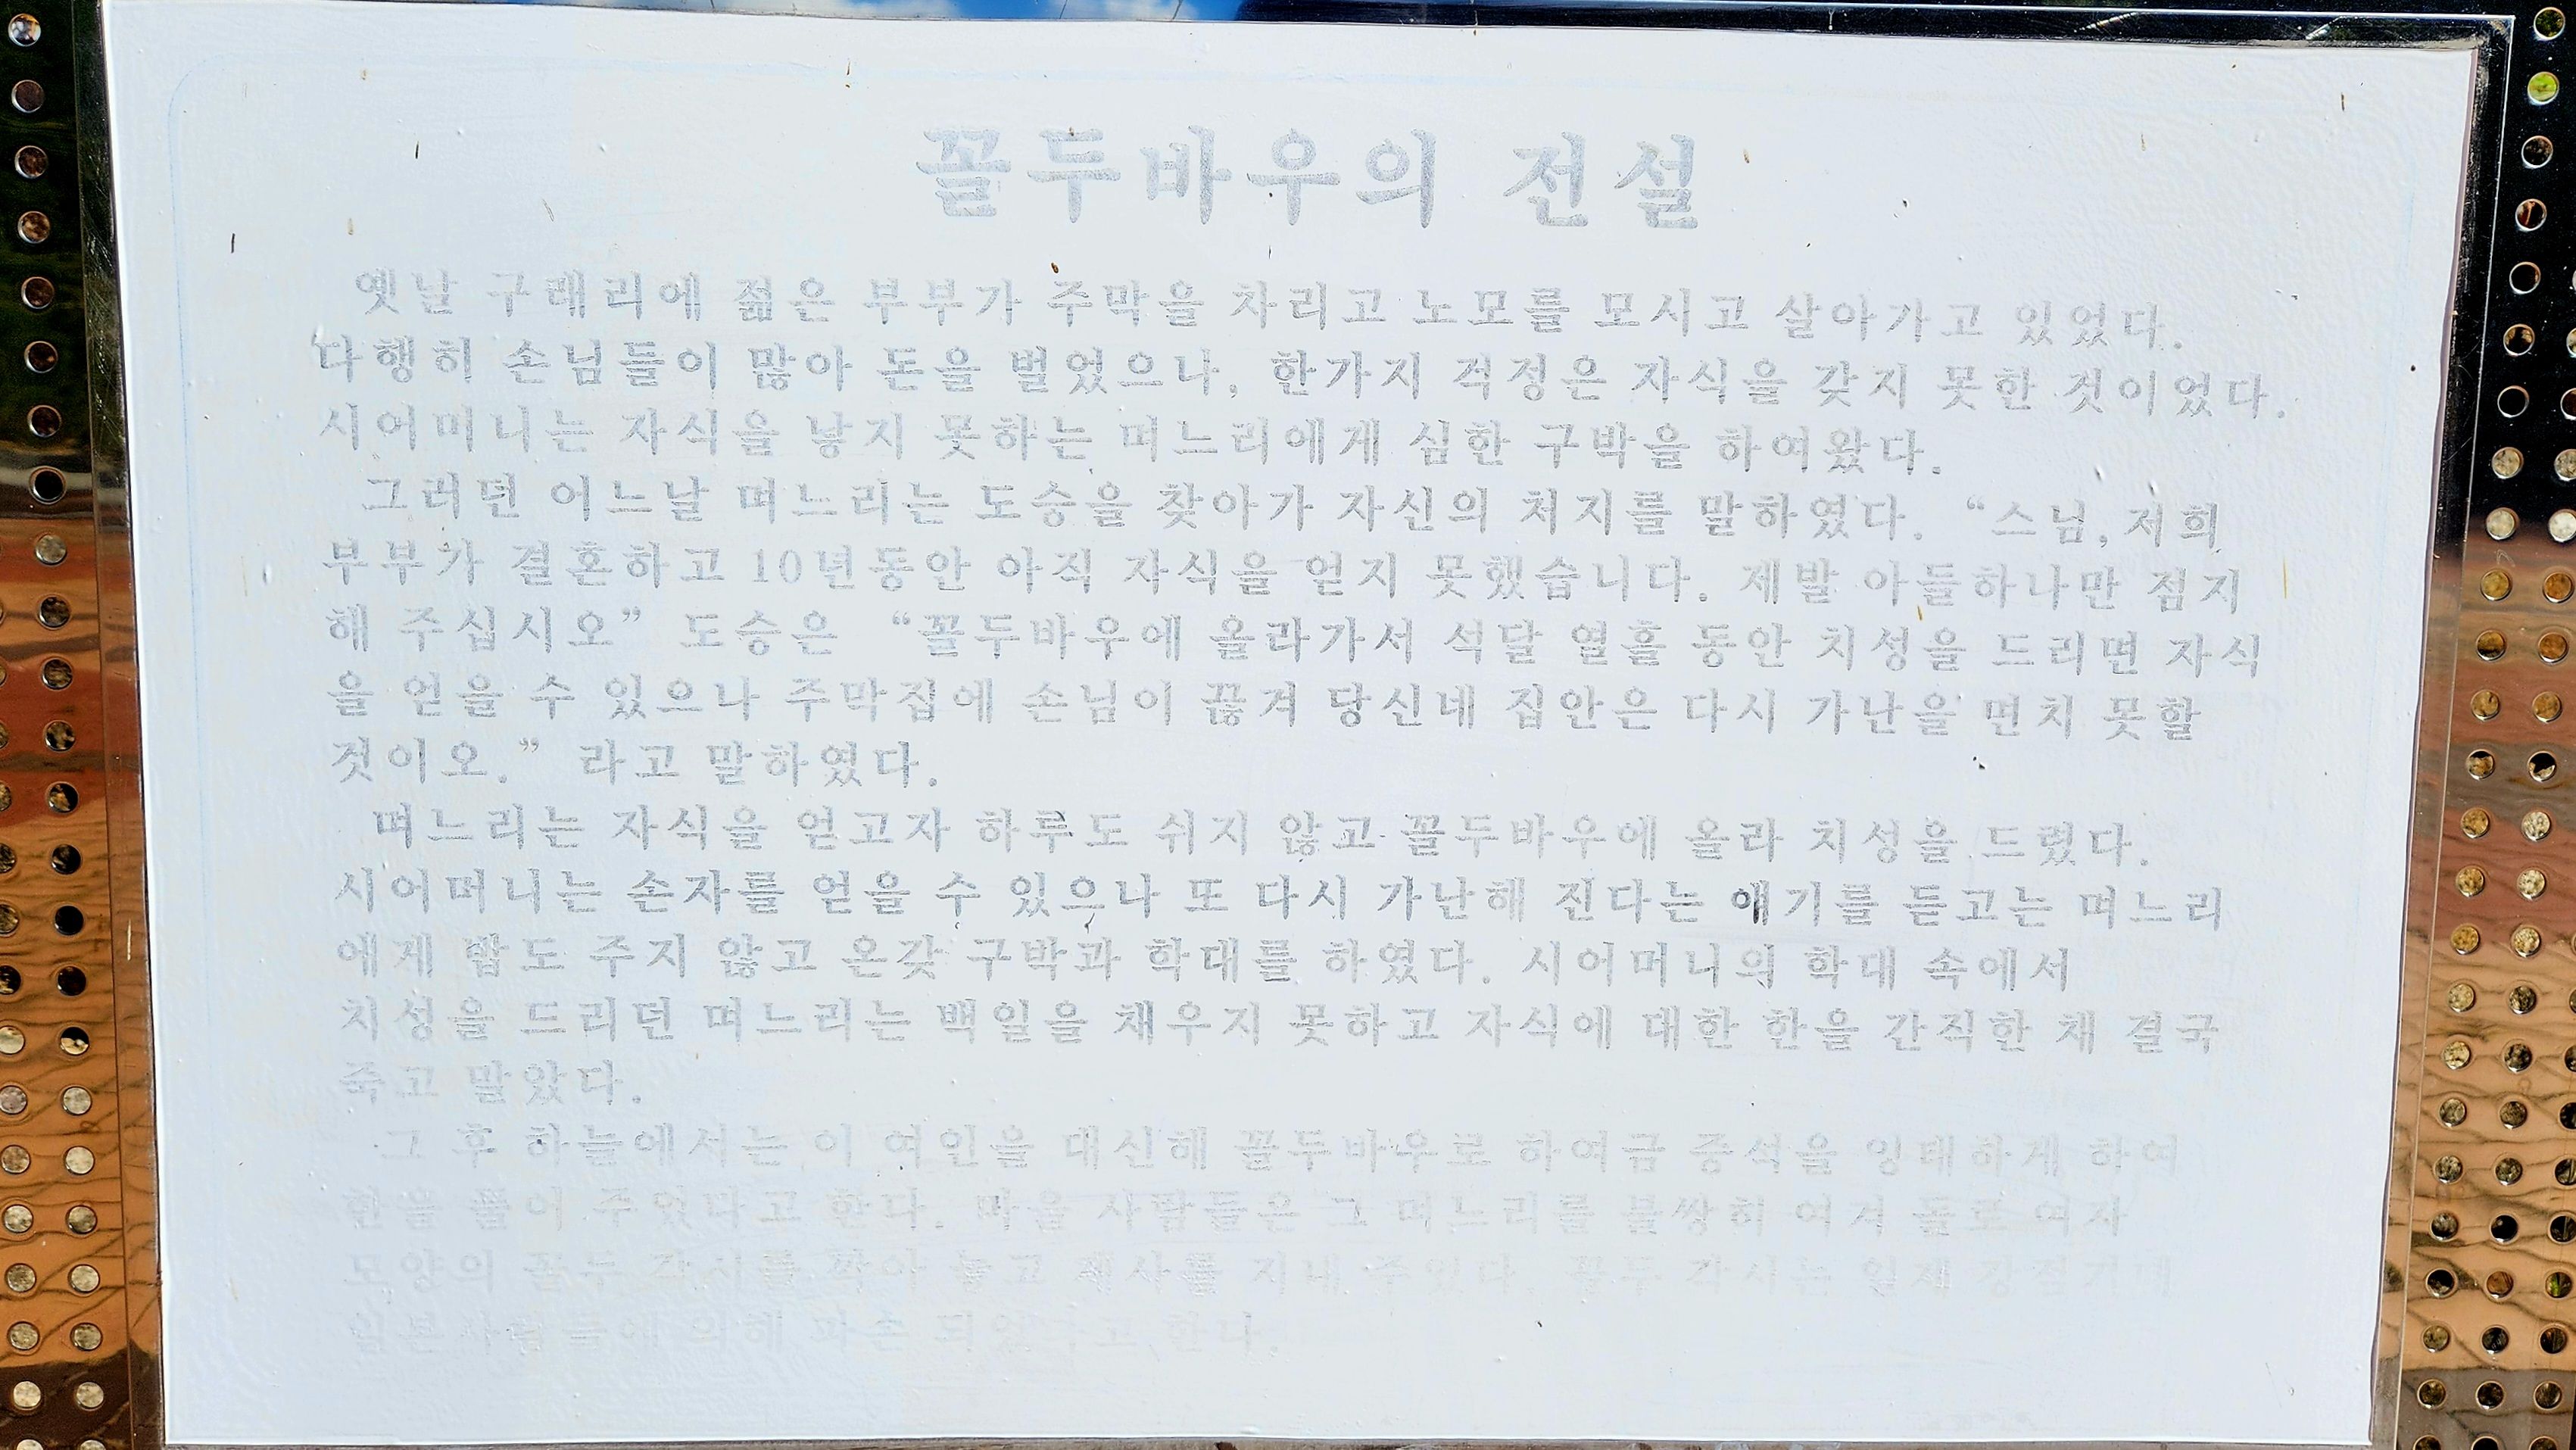 꼴두바우의 전설
옛날 구래리에 젊은 부부가 주막을 차리고 노모를 모시고 살아가고 있었다.
다행히 손님들이 많아 돈을 벌었으나, 한가지 걱정은 자식을 갖지 못한 것이었다.
시어머니는 자식을 낳지 못하는 며느리에게 심한 구박을 하여왔다.
그러던 어느날 며느리는 도승을 찾아가 자신의 처지를 말하였다. “스님, 저희
부부가 결혼하고 10년동안 아직 자식을 얻지 못했습니다. 제발 아들하나만 점지
해 주십시오” 도승은 “꼴두바우에 올라가서 석달 열흘 동안 치성을 드리면 자식
을 얻을 수 있으나 주막집에 손님이 끊겨 당신네 집안은 다시 가난을 면치 못할
것이오.” 라고 말하였다.
며느리는 자식을 얻고자 하루도 쉬지 않고 꼴두바우에 올라 치성을 드렸다.
시어머니는 손자를 얻을 수 있으나 또 다시 가난해 진다는 얘기를 듣고는 며느리
에게 밥도 주지 않고 온갖 구박과 학대를 하였다. 시어머니의 학대 속에서
치성을 드리던 며느리는 백일을 채우지 못하고 자식에 대한 한을 간직한 채 결국
죽고 말았다.
그 후 하늘에서는 이 여인을 대신해 꼴두바우로 하여금 중석을 잉태하게 하여
한을 풀어 주었다고 한다. 마을 사람들은 그 며느리를 불쌍히 여겨 돌로 여자
모양의 꼴두 각시를 깍아 놓고 제사를 지내 주었다. 꼴두 각시는 일제 강점기에
일본사람들에 의해 파손 되었다고 한다.